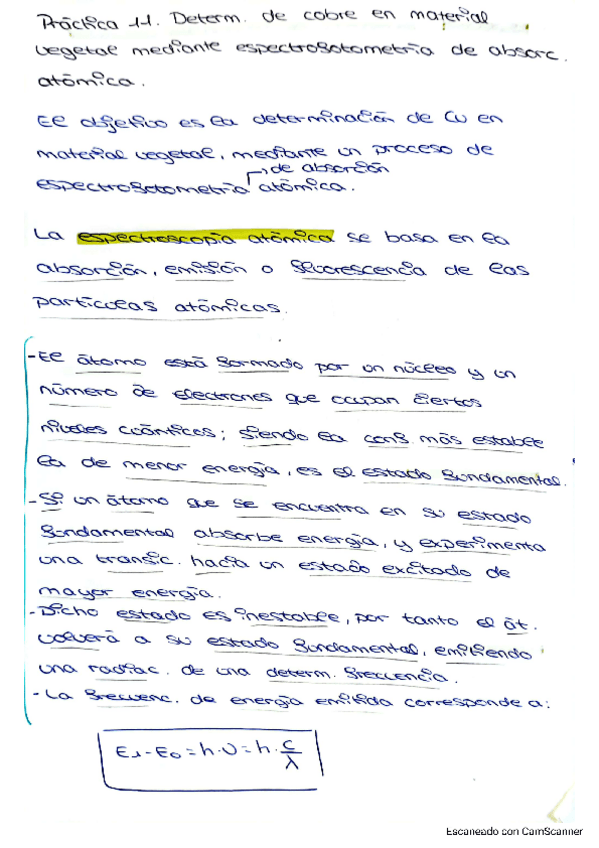 Práctica 11. Determ. de cobre en material
vegetal mediante espectrofotometría de absorc.
atómica.
El objetivo es la determinación de Cu en
material vegetal, mediante un proceso de
de absorción
espectrofotometría atómica.
La espectroscopía atómica se basa en la
absorción, emisión o fluorescencia de las
partículas atómicas.
-El átomo está formado por un núcleo y un
número de electrones que ocupan ciertos
niveles cuánticos; siendo la conf. más estable
la de menor energía, es el estado fundamental.
-Si un átomo que se encuentra en su estado
fundamental absorbe energía, y experimenta
una transic. hacia un estado excitado de
mayor energía.
-Dicho estado es inestable, por tanto el át.
volverá a su estado fundamental, emitiendo
una radiac. de una determ. frecuencia.
-La frecuenc. de energía emitida corresponde a:
E₁-E₀=h·υ=h·c/λ
Escaneado con CamScanner